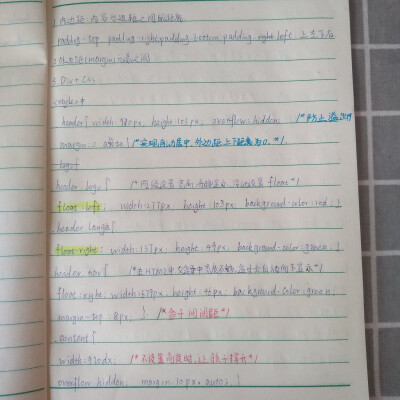 1. 内边距: 内容与边框之间的距离
padding-top padding-right padding-bottom padding-left. 上右下左
2. 外边距(margin)
3. Div + CSS
<style>
header{ width: 980px; height: 103px; overflow: hidden; /*防止溢出*/
margin: 0 auto; /*实现自动居中, 外边距上下距离为0.*/
.logo{
header .logo{ /*float*/
float: left; width: 277px; height: 103px; background-color: red; }
.header
float: right; width: 137px; height: 49px; background-color: green; }
header .nav{ /*在HTML中
float: right; width: 679px; height: 46px; background-color: green;
margin-top: 8px; } /*盒子间间距*/
.content{
width: 920px; /*不设置高度时, 让孩子撑开*/
overflow: hidden; margin: 10px auto; }